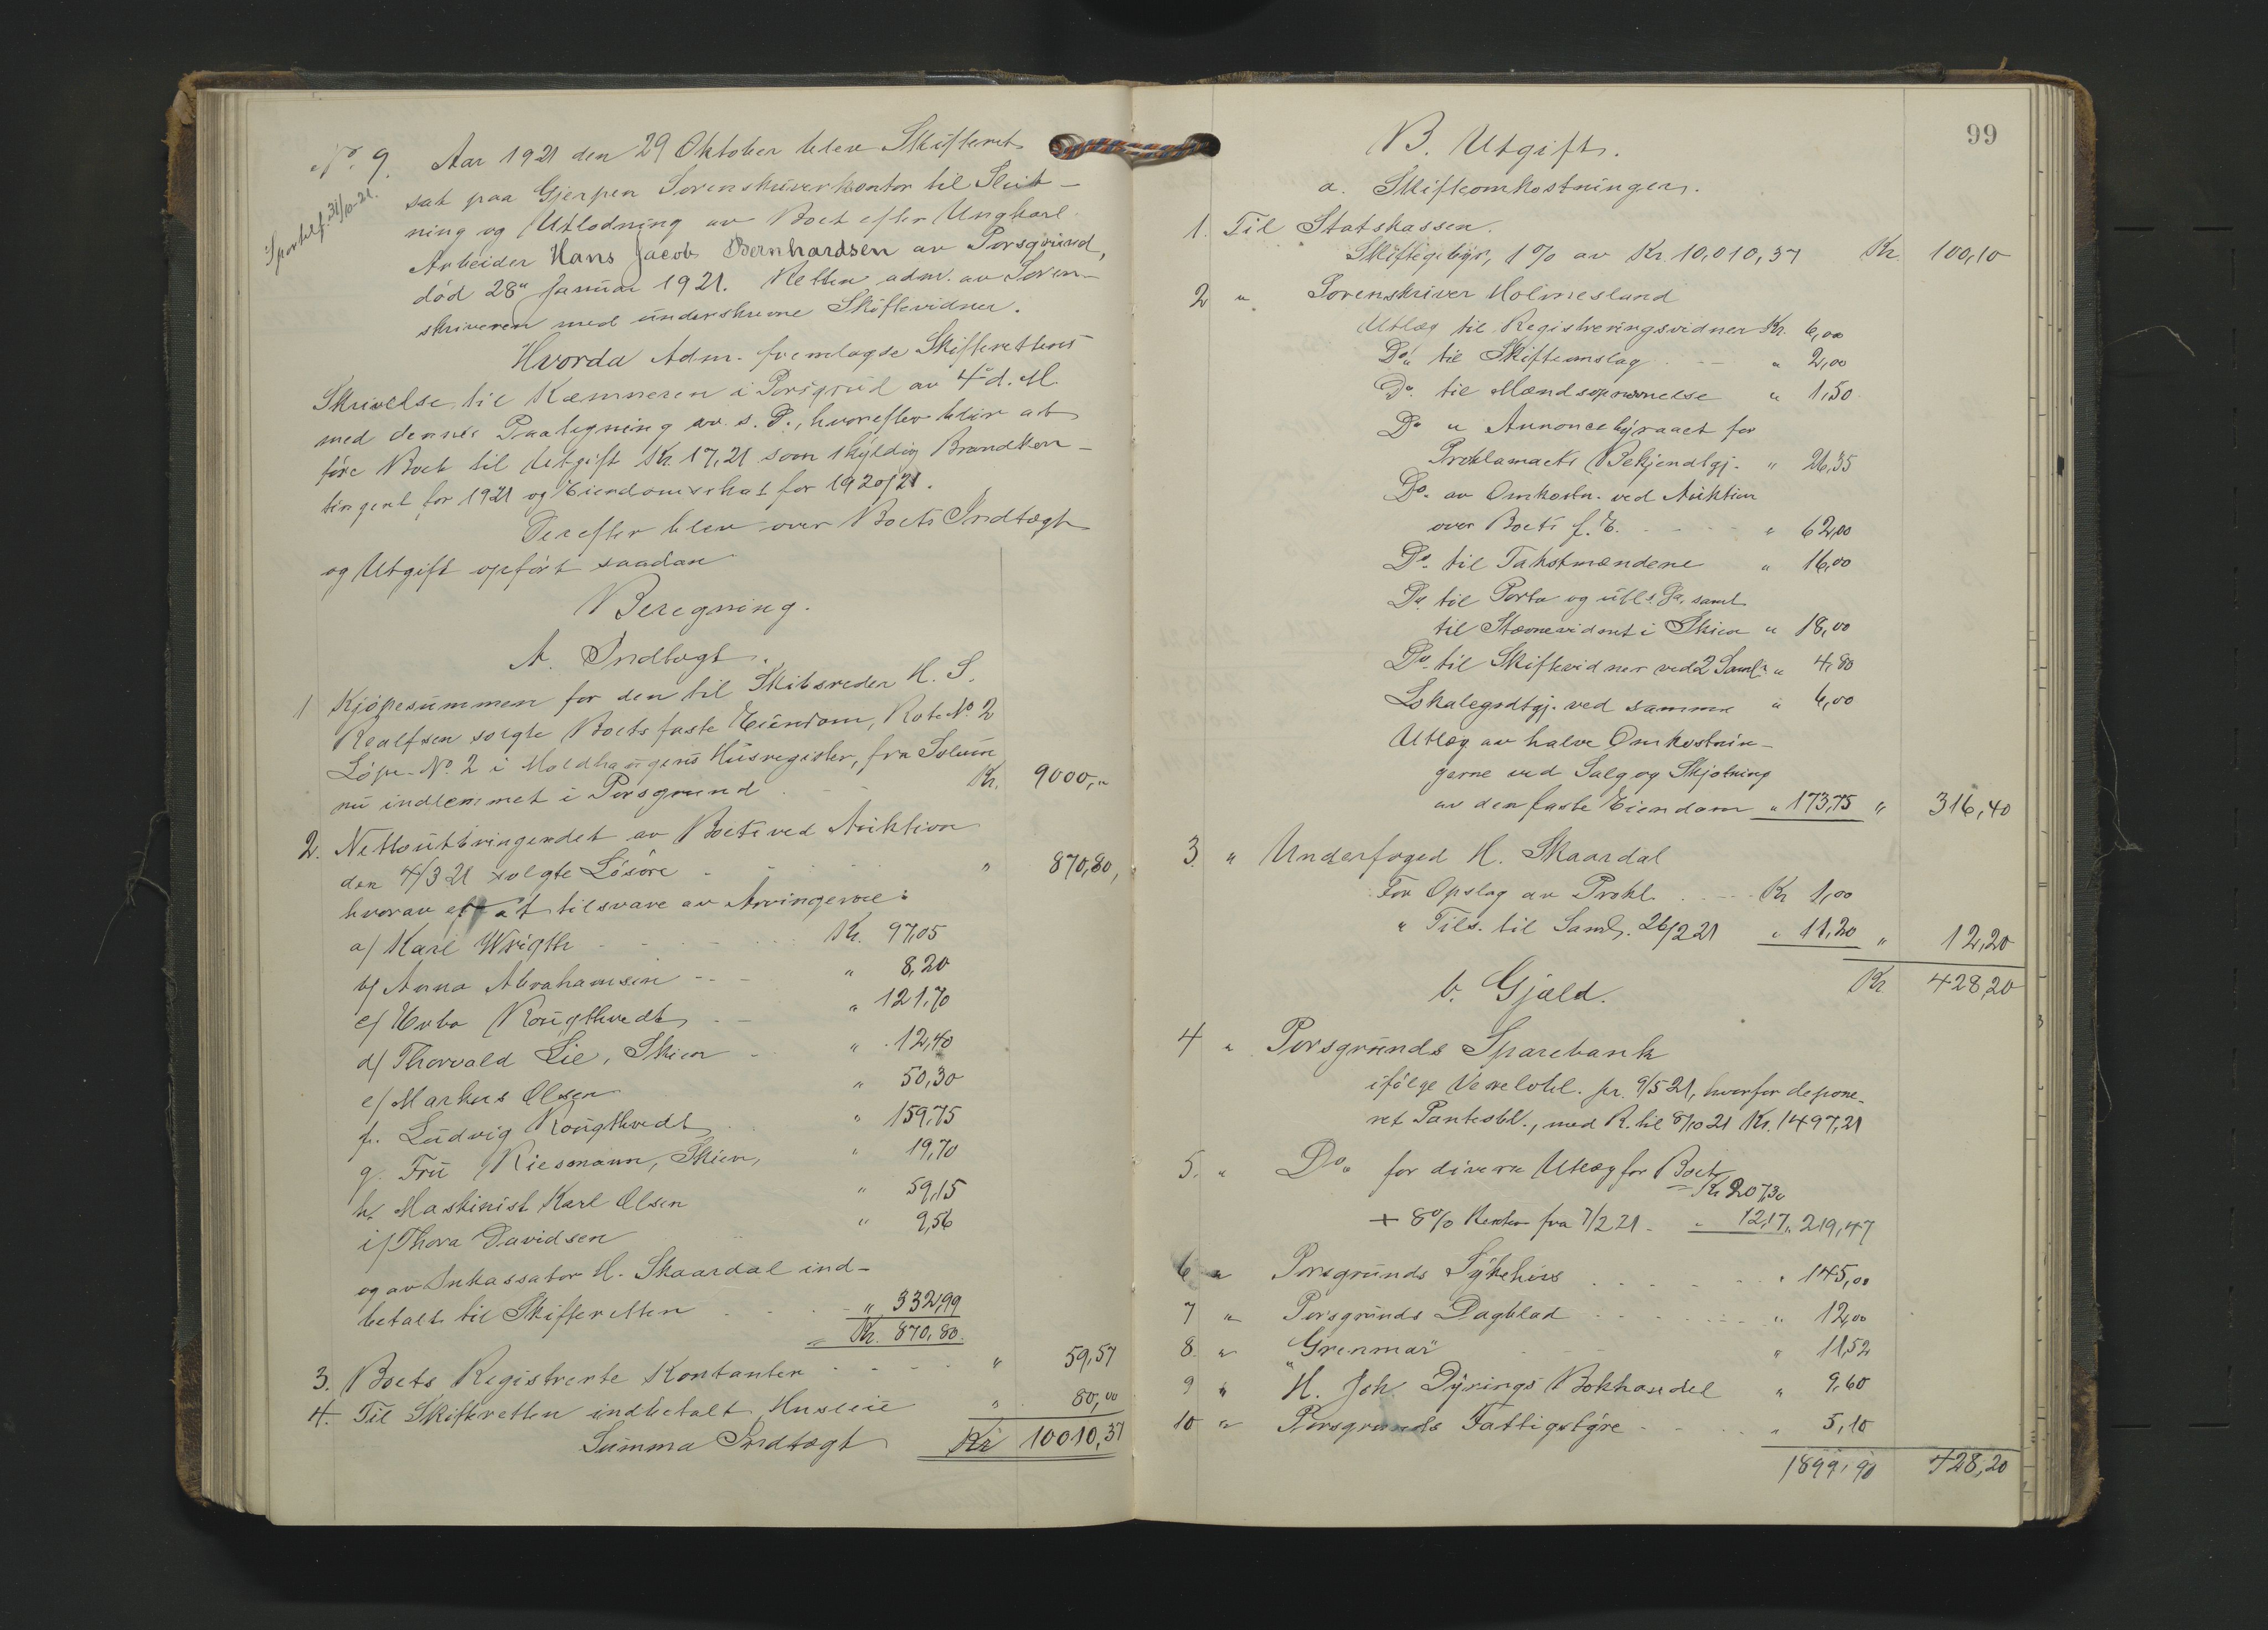 No. 9. Aar 1921 den 29 Oktober blev Skifteret
Sportelf. 31/10-21.
sat paa Gjerpen Sorenskriverkontor til Slut-
ning og Utlodning av Boet efter Ungkarl
Arbeider Hans Jacob Bernhardsen av Porsgrund,
död 28" Januar 1921. Retten adm. av Soren-
skriveren med underskrevne Skiftevidner.
Hvorda Adm. fremlagde Skifterettens
Skrivelse til Kæmneren i Porsgrund av 4" d. M.
med dennes Paategning av s. D., hvorefter blir at
före Boet til Utgift Kr. 17,21 som skyldig Brandkon-
tingent for 1921 og Eiendomsskat for 1920/21.
Derefter blev over Boets Indtægt
og Utgift opfört saadan
Beregning.
A. Indtægt.
1 Kjöpesummen for den til Skibsreder H. S.
Realfsen solgte Boets faste Eiendom, Rote No. 2
Löpe-No. 2 i Moldhaugens Husregister, fra Solum
nu indlemmet i Porsgrund - - Kr. 9000,"
2. Nettoutbringendet av Boets ved Auktion
den 4/3 21 solgte Lösöre - - - " 870,80,
hvorav er at tilsvare av Arvingerne:
a/ Karl Wrigth - - - - Kr. 97,05
b/ Anna Abrahamsen - - - " 8,20
c/ Ebba Rougthvedt - - " 121,70
d/ Thorvald Lie, Skien - " 12,40
e/ Markus Olsen " 50,30
f. Ludvig Rougthvedt - " 159,75
g. Fru Riesmann, Skien, " 19,70
h/ Maskinist Karl Olsen " 59,15
i/ Thora Davidsen " 9,56
og av Inkassator H. Skaardal ind-
betalt til Skifteretten - - - - " 332,99
= Kr. 870,80.
3. Boets Registrerte Kontanter - - - - " 59,57
4. Til Skifteretten indbetalt Husleie " 80,00
Summa Indtægt Kr 10010,37
99
B. Utgift.
a. Skifteomkostninger.
1. Til Statskassen.
Skiftegebyr, 1% av Kr. 10,010,37 Kr. 100,10
2 " Sorenskriver Holmesland
Utlæg til Registreringsvidner Kr. 6,00
Do. til Skifteomslag - - " 2,00
Do. til Mændsopnævnelse " 1,50
Do " Annoncebyraaet for
Proklamaets Bekjendtgj. " 26,35
Do. av Omkostn. ved Auktion
over Boets f. E. - - - " 62,00
Do. til Takstmændene " 16,00
Do. til Porto og samt
til Stævnevidnet i Skien " 18,00
Do. til Skiftevidner ved 2 Saml. " 4,80
Lokalegodtgj. ved samme " 6,00
Utlæg av halve Omkostnin-
gerne ved Salg og Skjötning
av den faste Eiendom " 173,75 " 316,40
3. " Underfoged H. Skaardal
For Opslag av Prokl. - - - Kr 1,00
" Tils. til Saml. 26/2 21 " 11,20 " 12,20
b. Gjæld. Kr 428,20
4 " Porsgrunds Sparebank
ifölge Vexelobl. pr. 9/5 21, hvorfor depone-
ret Panteobl., med R. til 8/10 21 Kr. 1497,21
5. " Do. for diverse Utlæg for Boet
Kr 207,30
+ 8% Renter fra 7/2 21 - " 12,17 " 219,47
6 " Porsgrunds Sykehus - - - - " 145,00
7 " Porsgrunds Dagblad - - - - " 12,00
8. " "Grenmar" - - " 11,52
9 " H. Joh. Dyrings Bokhandel " 9,60
10 " Porsgrunds Fattigstyre - - - - " 5,10
1899,90 428,20